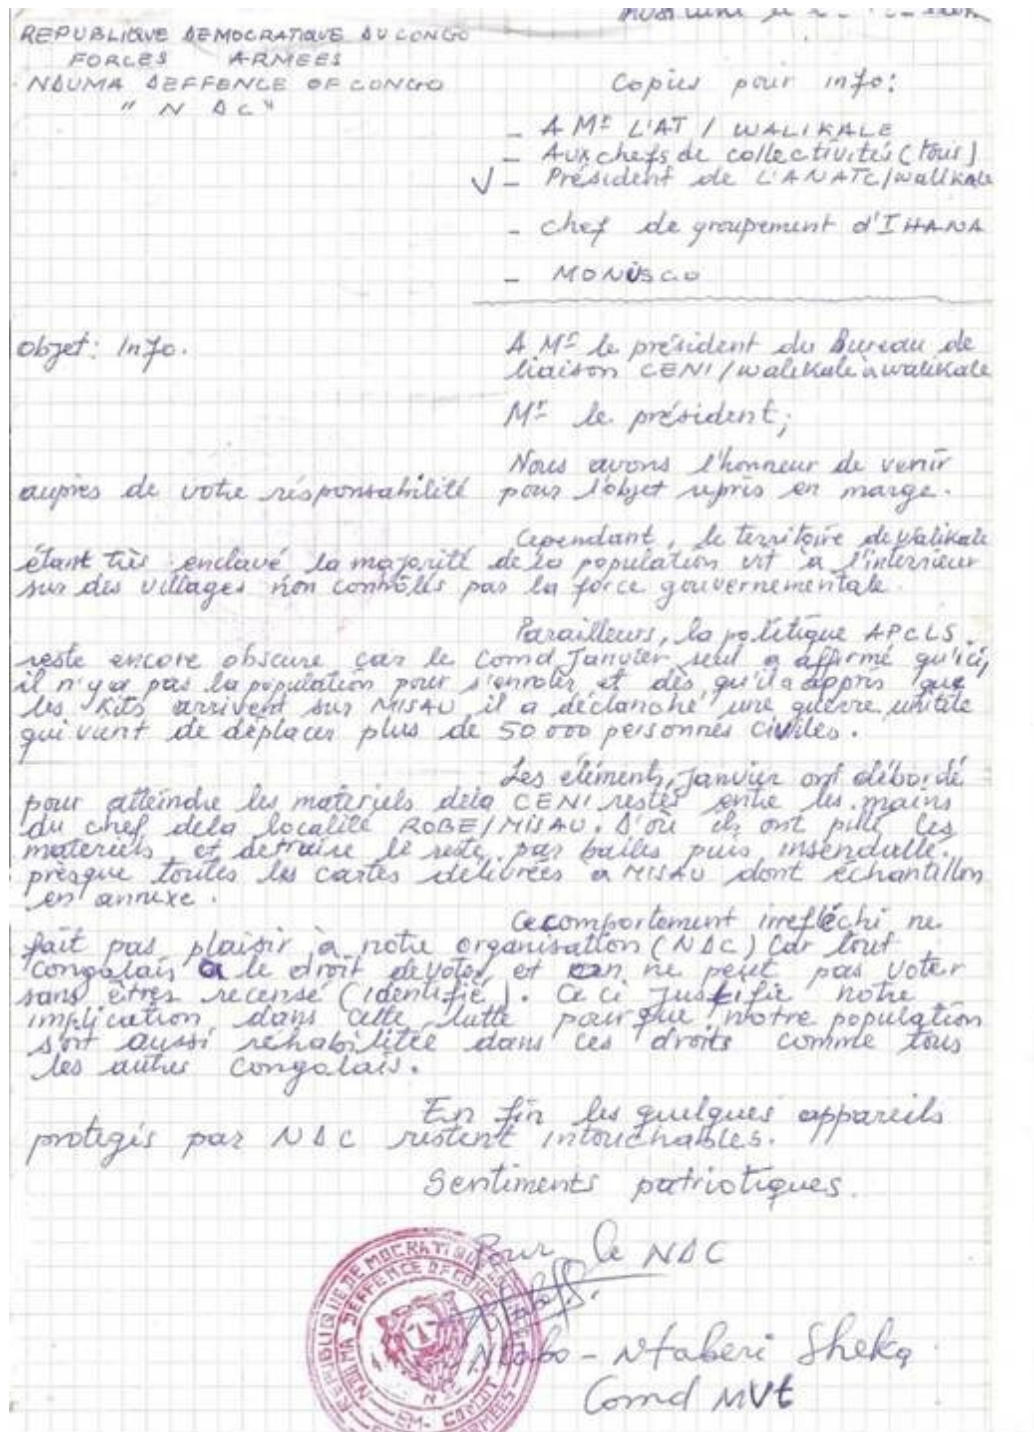 REPUBLIQUE DEMOCRATIQUE DU CONGO
FORCES ARMEES
NDUMA DEFFENCE OF CONGO
"N DC"
Copies pour info:
- A Mr L'AT / WALIKALE
- Aux chefs de collectivités (tous)
√ - Président de L'ANATC/walikale
- chef de groupement d'IHANA
- MONUSCO
Objet: Info.
A Mr le président du Bureau de
liaison CENI/walikale à walikale
Mr le président;
Nous avons l'honneur de venir
auprès de votre résponsabilité pour l'objet repris en marge.
Cependant, le territoire de Walikale
étant très enclavé la majorité de la population vit à l'interieur
sur des villages non contrôlés par la force gouvernementale.
Parailleurs, la politique APCLS.
reste encore obscure car le Comd Janvier seul a affirmé qu'ici,
il n'ya pas la population pour s'enroler et dès qu'ila appris que
les Kits arrivent sur MISAU il a déclanché une guerre
qui vient de déplacer plus de 50 000 personnes civiles.
Les éléments Janvier ont débordé
pour atteindre les materiels dela CENI restés entre les mains
du chef dela localité ROBE/MISAU. D'où ils ont pillé les
materiels et détruire le reste par balles puis
presque toutes les cartes délivrées à MISAU dont échantillon
en annexe.
Cecomportement irrefléchi ne
fait pas plaisir à notre organisation (NDC) Car tout
congolais a le droit devoter et on ne peut pas voter
sans êtres recensé (identifié). Ce ci justifie notre
implication dans cette lutte pour que notre population
soit aussi rehabilitée dans ces droits comme tous
les autres congolais.
En fin les quelques appareils
protegés par NDC restent intouchables.
Sentiments patriotiques.
Pour le NDC
Ntabo - Ntaberi Sheka
Comd MVt
REPUBLIQUE DEMOCRATIQUE
NDUMA DEFFENCE OF CONGO